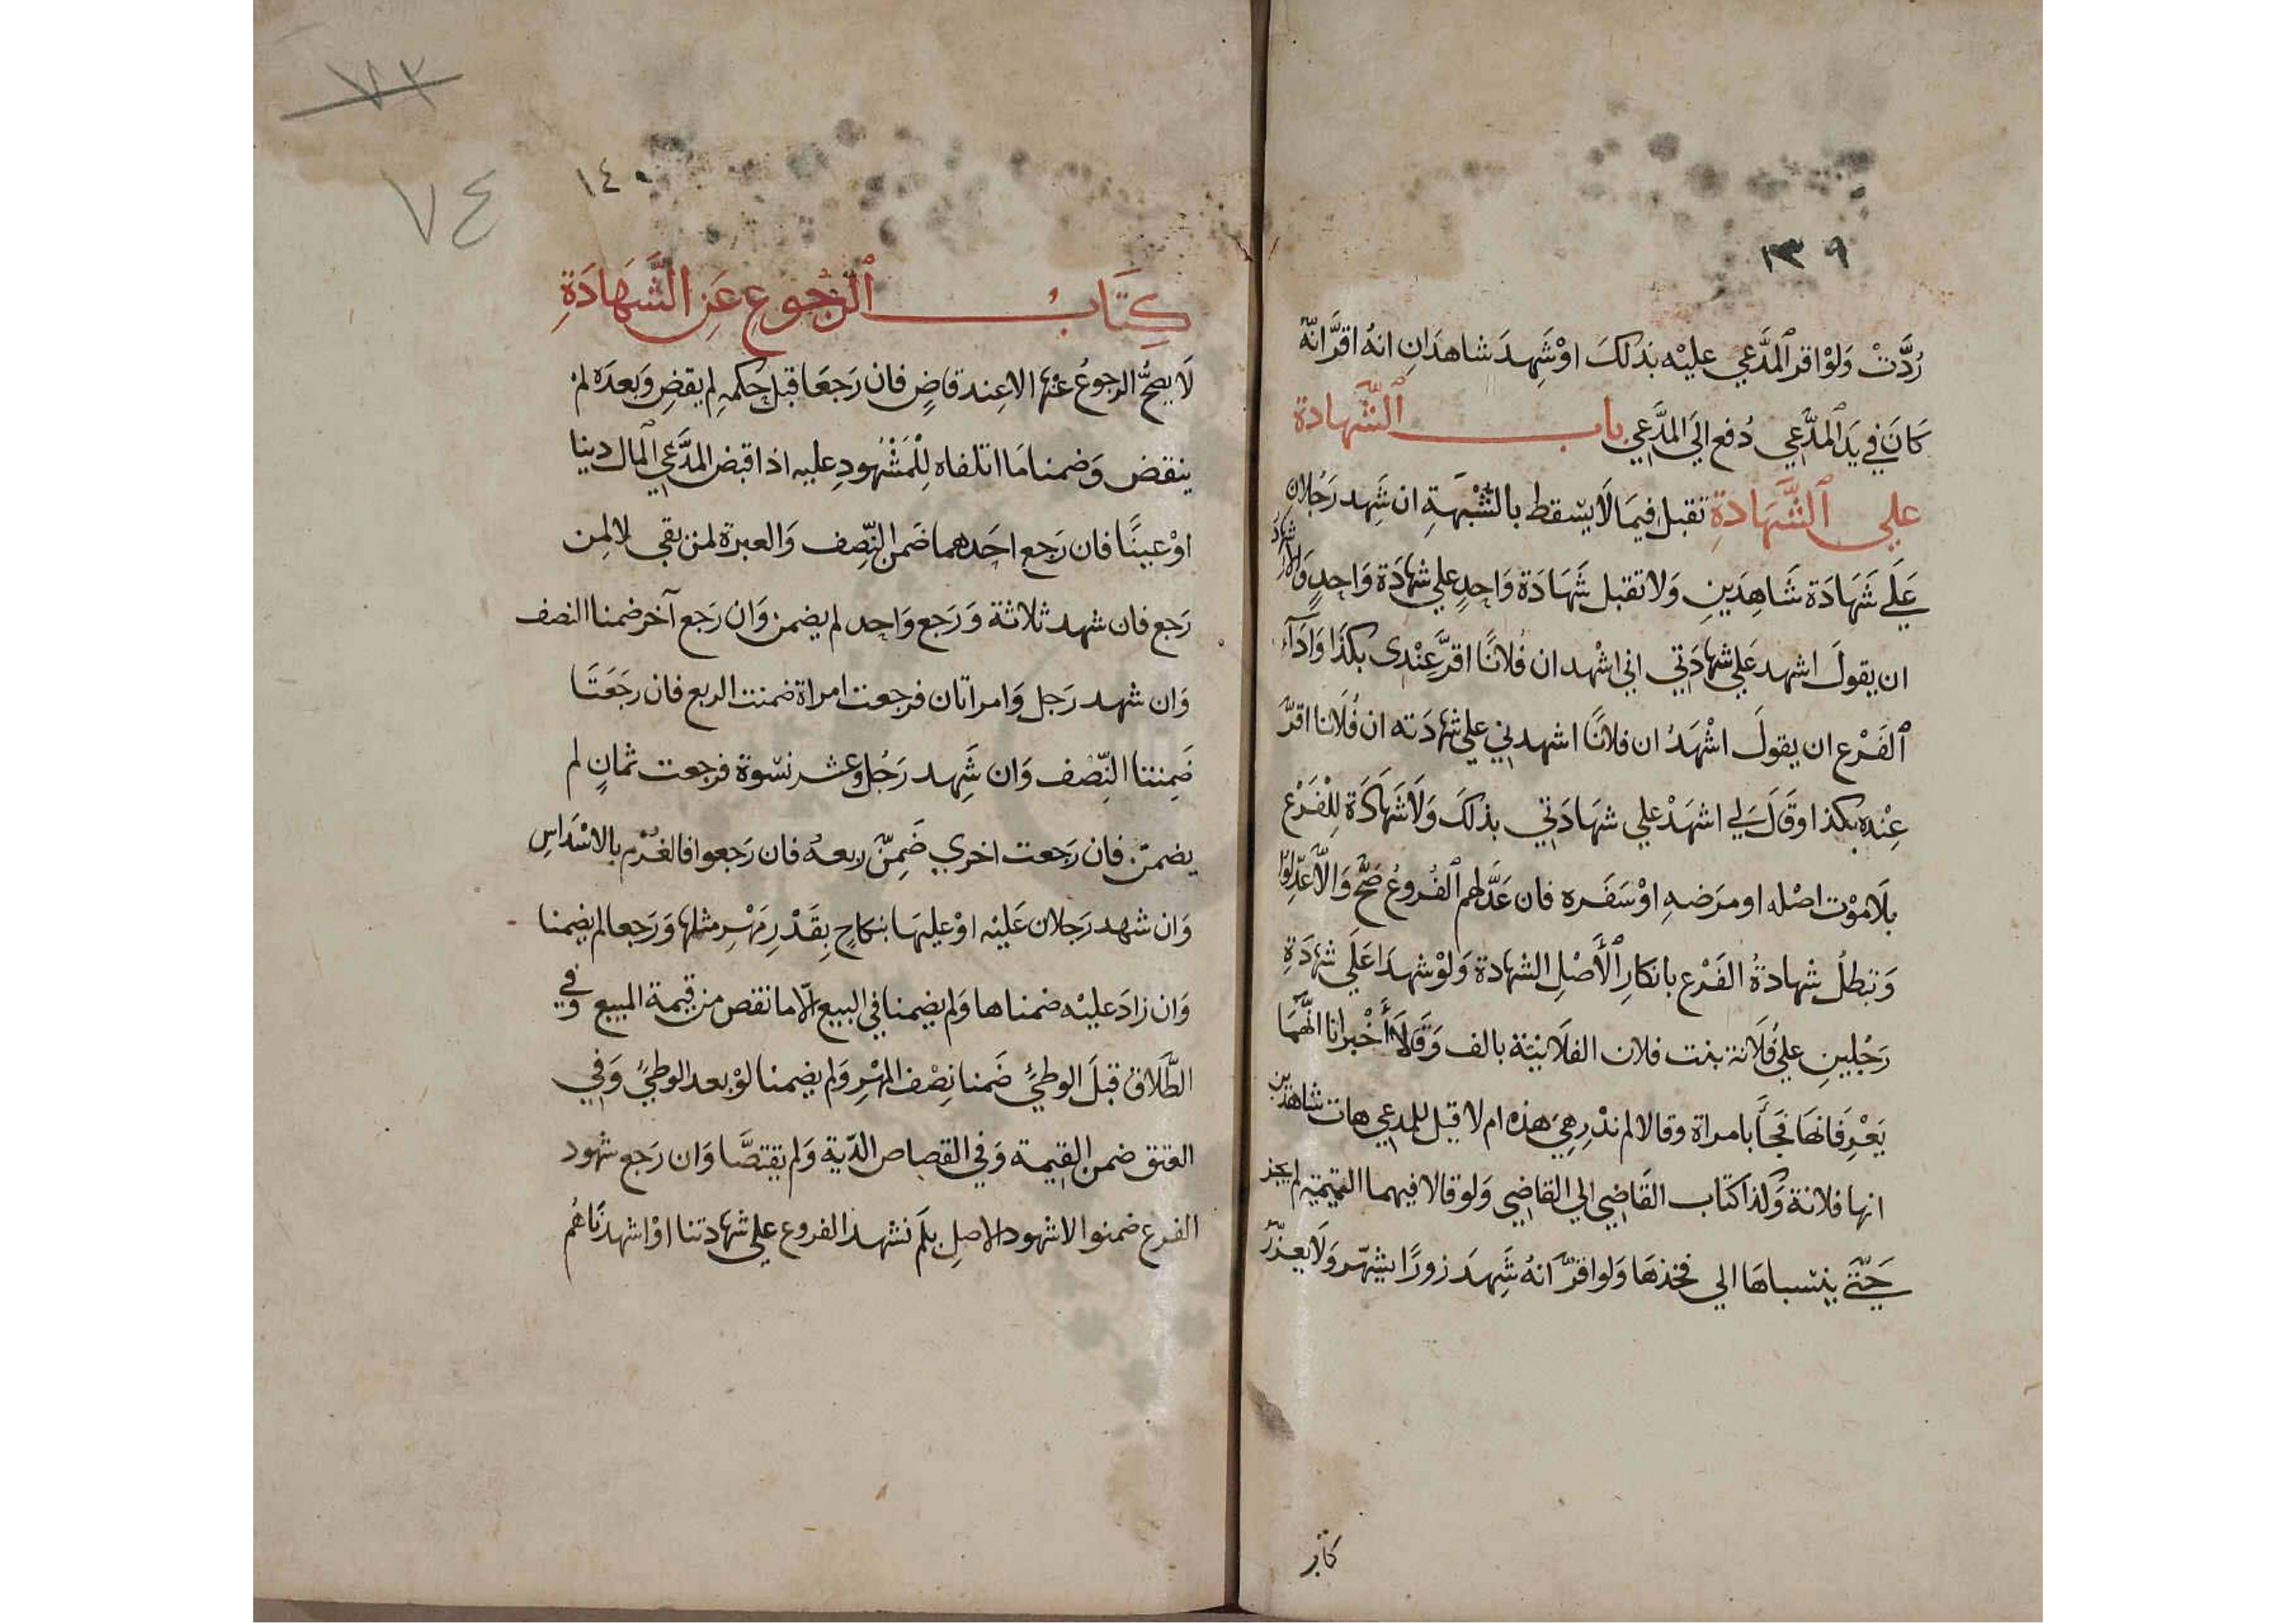 ١٣٩
رُدَّتْ وَلَوْ اقر ٱلمدَّعي عليْه بذلكَ اوْ شَهِدَ شاهدَانِ انهُ اقرَّ انّهُ
كَانَ في يَدِ ٱلمدَّعي دُفع الَي المدَّعي بابُ ٱلشَّهادة
علي ٱلشَّهَادَةِ تقبل فيمَا لَا يسْقط بالشُّبْهَةِ ان شَهِد رَجُلانِ
عَلَي شَهَادَة شَاهِدَينِ وَلا تقبل شَهَادَة وَاحِدٍ علي شهادَة وَاحِدٍ وَالاشهادُ
ان يقولَ اشهد عَلي شهادَتي اني اشْهد ان فُلانًا اقرَّ عنْدى بكذَا وَادَآء
ٱلفَرْع ان يقولَ اشْهَدُ ان فلانًا اشهدني علي شهادَته ان فُلَانا اقرَّ
عِنْده بكذا وقَالَ لي اشهَدْ علي شهَادَتي بذلكَ وَلَا شَهَادَة لِلْفَرْع
بلَا مَوْت اصْله او مرَضهِ اوْ سَفَره فان عَدَّلهم ٱلفُروعُ صَحَّ وَالَّا عُدِّلُوا
وَتبطلُ شهادةُ الفَرْع بانكارِ ٱلأَصْلِ الشهادة وَلوْ شهدَا عَلَي شهَادَةِ
رَجُلينِ عليٰ فُلَانة بنت فلان الفلَانيّة بالف وَقَالَا أَخْبرانا انَّهمَا
يَعْرِفَانهَا فجآَ بامراة وقالا لم ندْرِ هيَ هذه ام لا قيل للمدعي هات شاهدَين
انها فلانة وَكذا كتَاب القَاضِي الي القاضِي وَلو قالا فيهما التميميّة لم يجز
حَتَّي ينسباهَا الي فخذهَا وَلو اقرّ انهُ شَهِدَ زورًا يشهّر وَلَا يعزّرُ
كتاب
٧٣
٧٤
١٤٠
كِتَابُ ٱلرُّجُوعِ عَنِ الشَّهَادَةِ
لَا يصحُّ الرجوعُ عنْها الا عِند قاضٍ فان رَجعَا قبْل حُكمهِ لم يقضِ وَبعدَه لمْ
ينقض وَضمنا مَا اتلفاه لِلْمَشْهُودِ عليه اذا قبض المدَّعي ٱلمال دينا
اوْ عينًا فان رَجع احَدهما ضَمن النِّصف وَالعبرة لمن بقي لا لمِن
رَجع فان شهد ثلاثة وَرَجع وَاحِد لم يضمن وَان رَجع آخر ضمنا النصف
وَان شهد رَجل وَامراتان فرجعت امراة ضمنت الربع فان رجَعَتَا
ضَمِنتا النِّصْف وَان شَهِد رَجُل وَعشر نسْوة فرجعت ثمانٍ لم
يضمنّ فان رَجعت اخري ضَمِنّ ربعهُ فان رَجعوا فالغُرْم بالاسْدَاسِ
وَان شهد رَجلان عَليْه اوْ عليهَا بنكاحٍ بِقَدْرِ مَهْرِ مثلها وَرَجعا لم يضمنا
وَان زادَ عليْه ضمناها وَلم يضمنا في البيع الّا ما نقص من قيمة المبيع وَفي
الطَّلَاق قبلَ الوطئِ ضَمنا نِصْف المهْرِ وَلم يضمنا لوْ بعد الوطئِ وَفي
العتق ضمن القِيمة وَفي القصاص الدّية وَلم يقتصَّا وَان رَجع شهود
الفرع ضمنوا لا شهود الاصلِ بلَم نشهد الفروع علي شهادتنا اوْ اشهدْنَاهُم